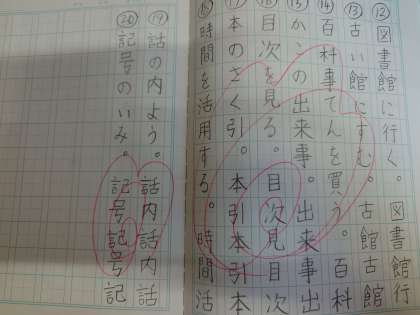 ⑫図書館に行く。図書館行
⑬古い館にすむ。古館古館
⑭百科事てんを買う。百科
⑮からの出来事。出来事出
⑯目次を見る。目次見目次
⑰本のさく引。本引本引本
⑱時間を活用する。時間活
⑲話の内よう。話内話内話
⑳記号のいみ。記号記号記